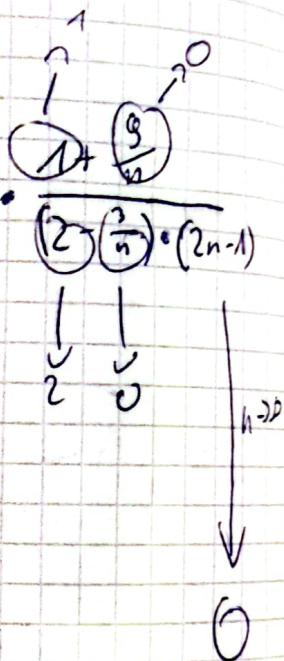 1
0
1 + 9/n
(2 - 3/n) · (2n-1)
2 0
n→∞
0